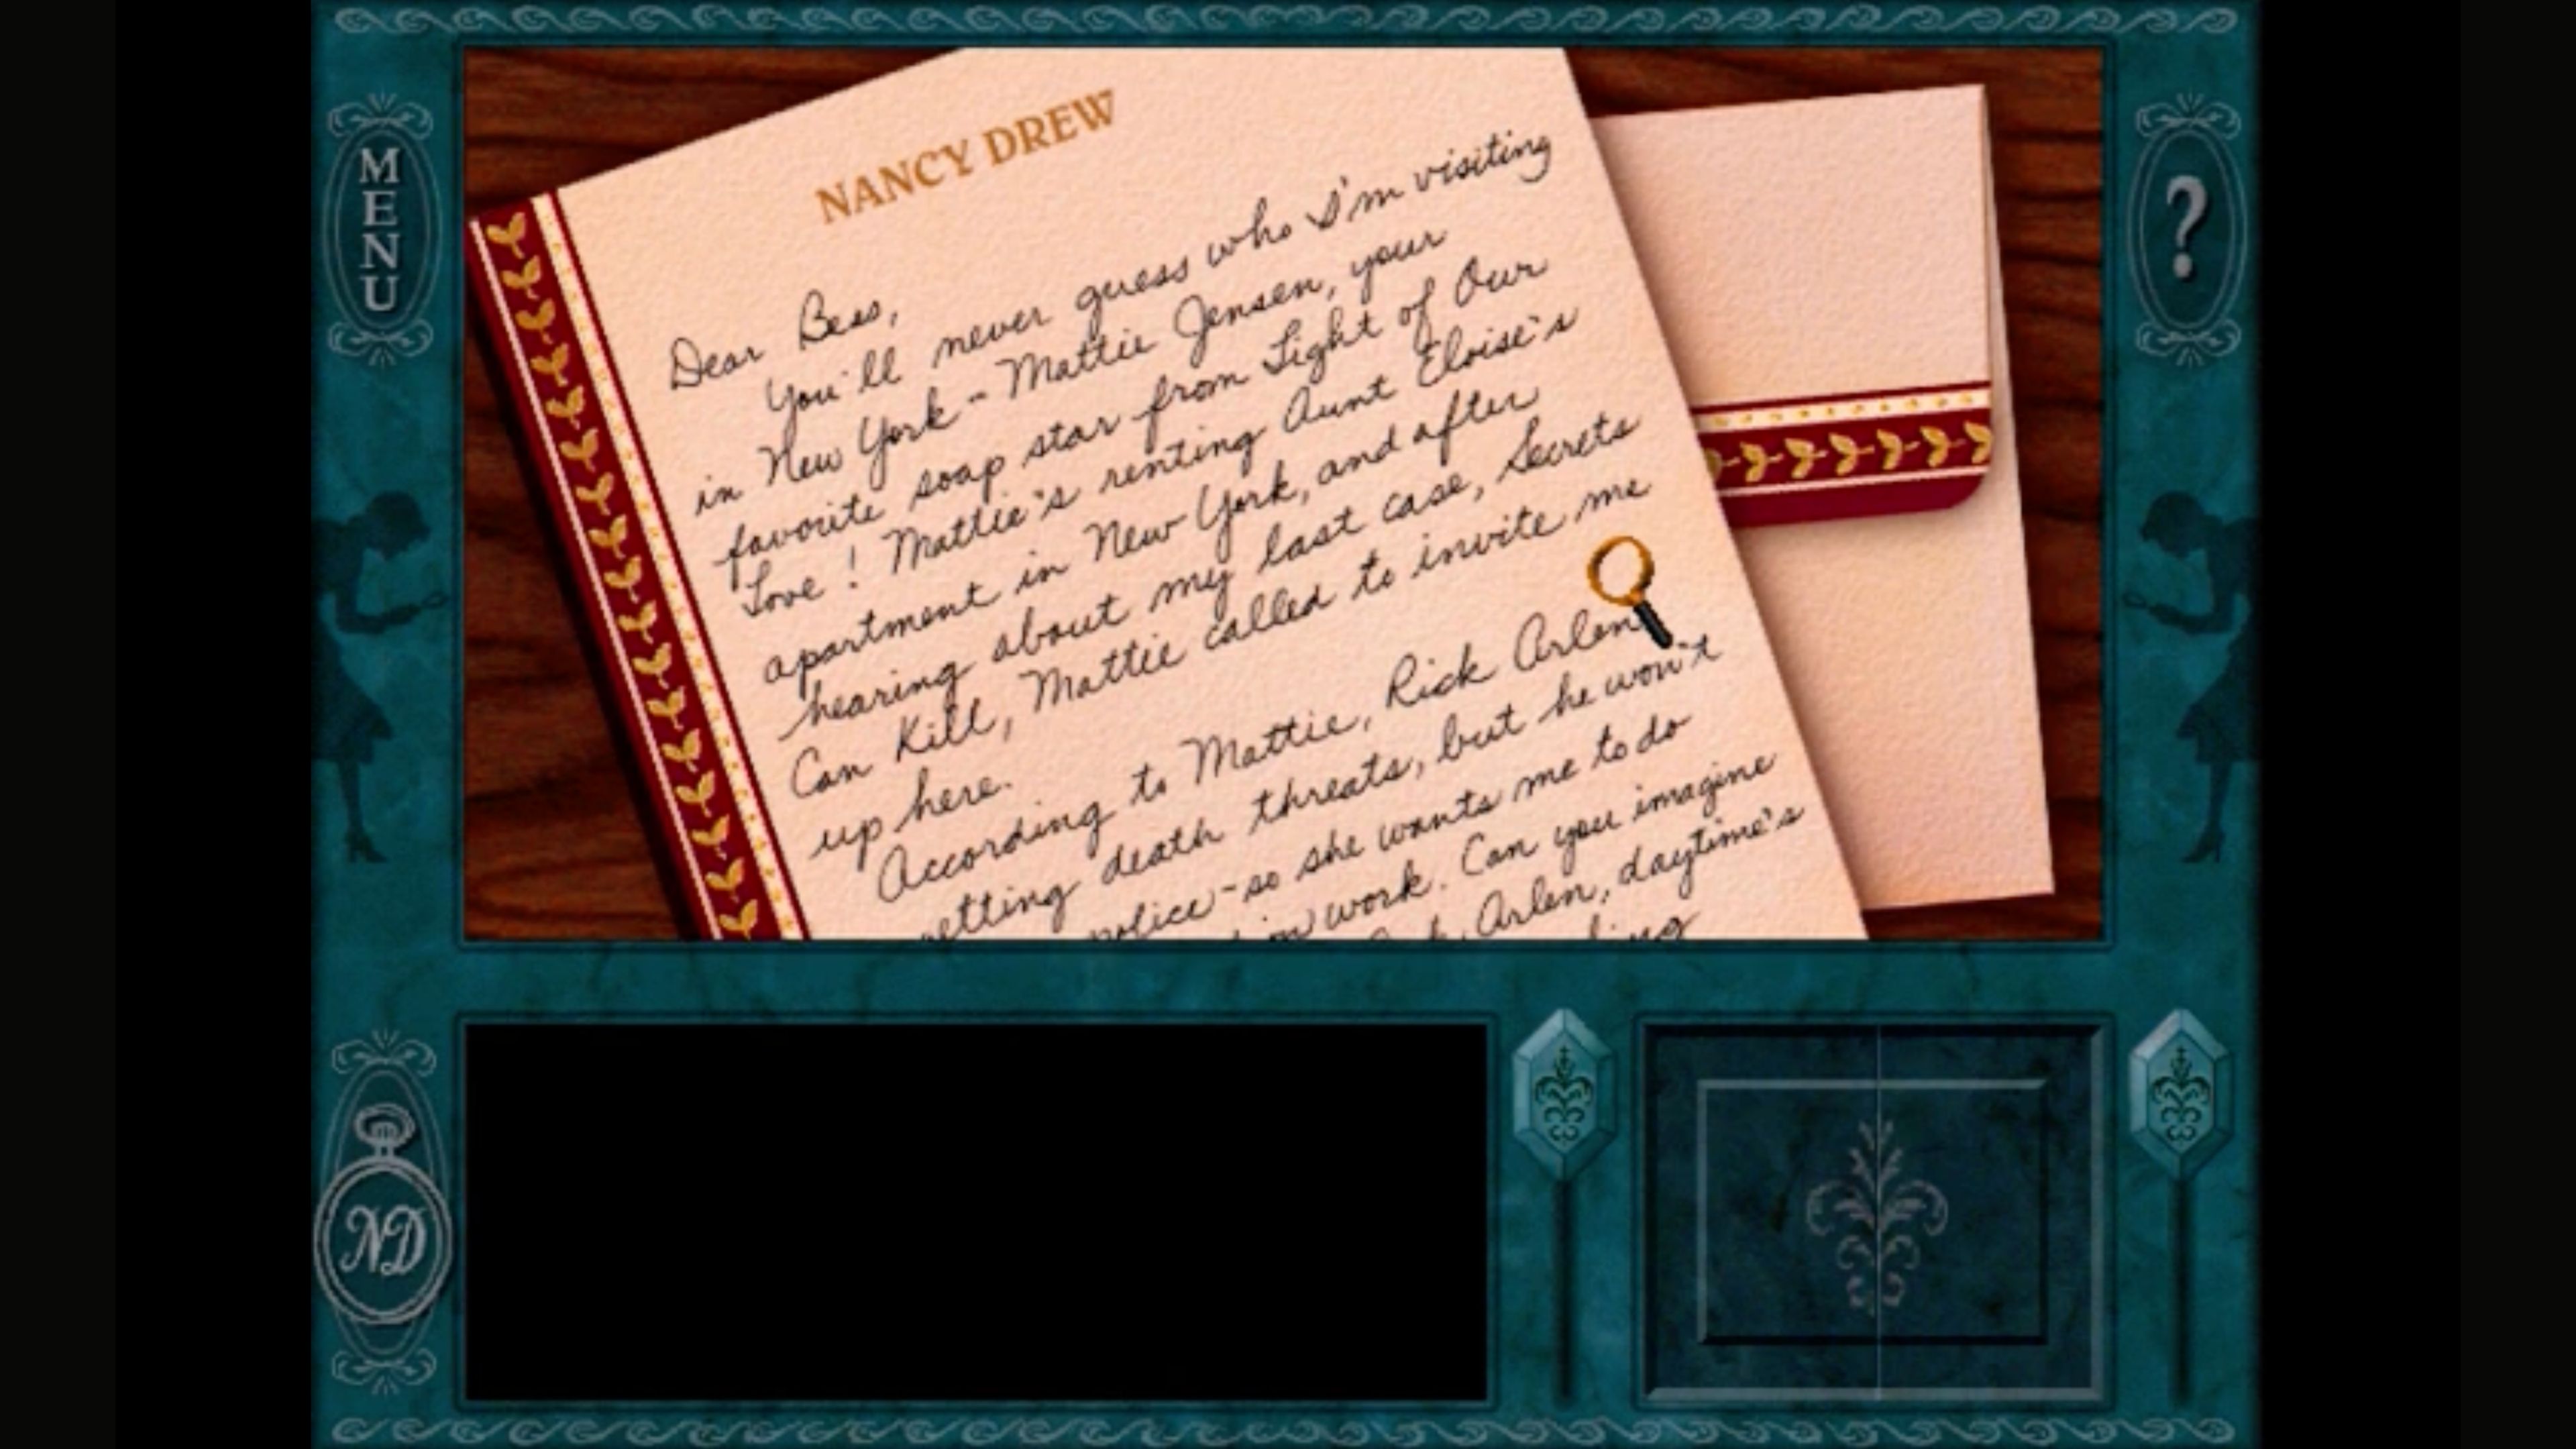 MENU
?
NANCY DREW
Dear Bess,
You'll never guess who I'm visiting
in New York - Mattie Jensen, your
favorite soap star from Light of Our
Love! Mattie's renting Aunt Eloise's
apartment in New York, and after
hearing about my last case, Secrets
Can Kill, Mattie called to invite me
up here.
According to Mattie, Rick Arlen
getting death threats, but he won't
police - so she wants me to do
work. Can you imagine
Arlen, daytime's
ND